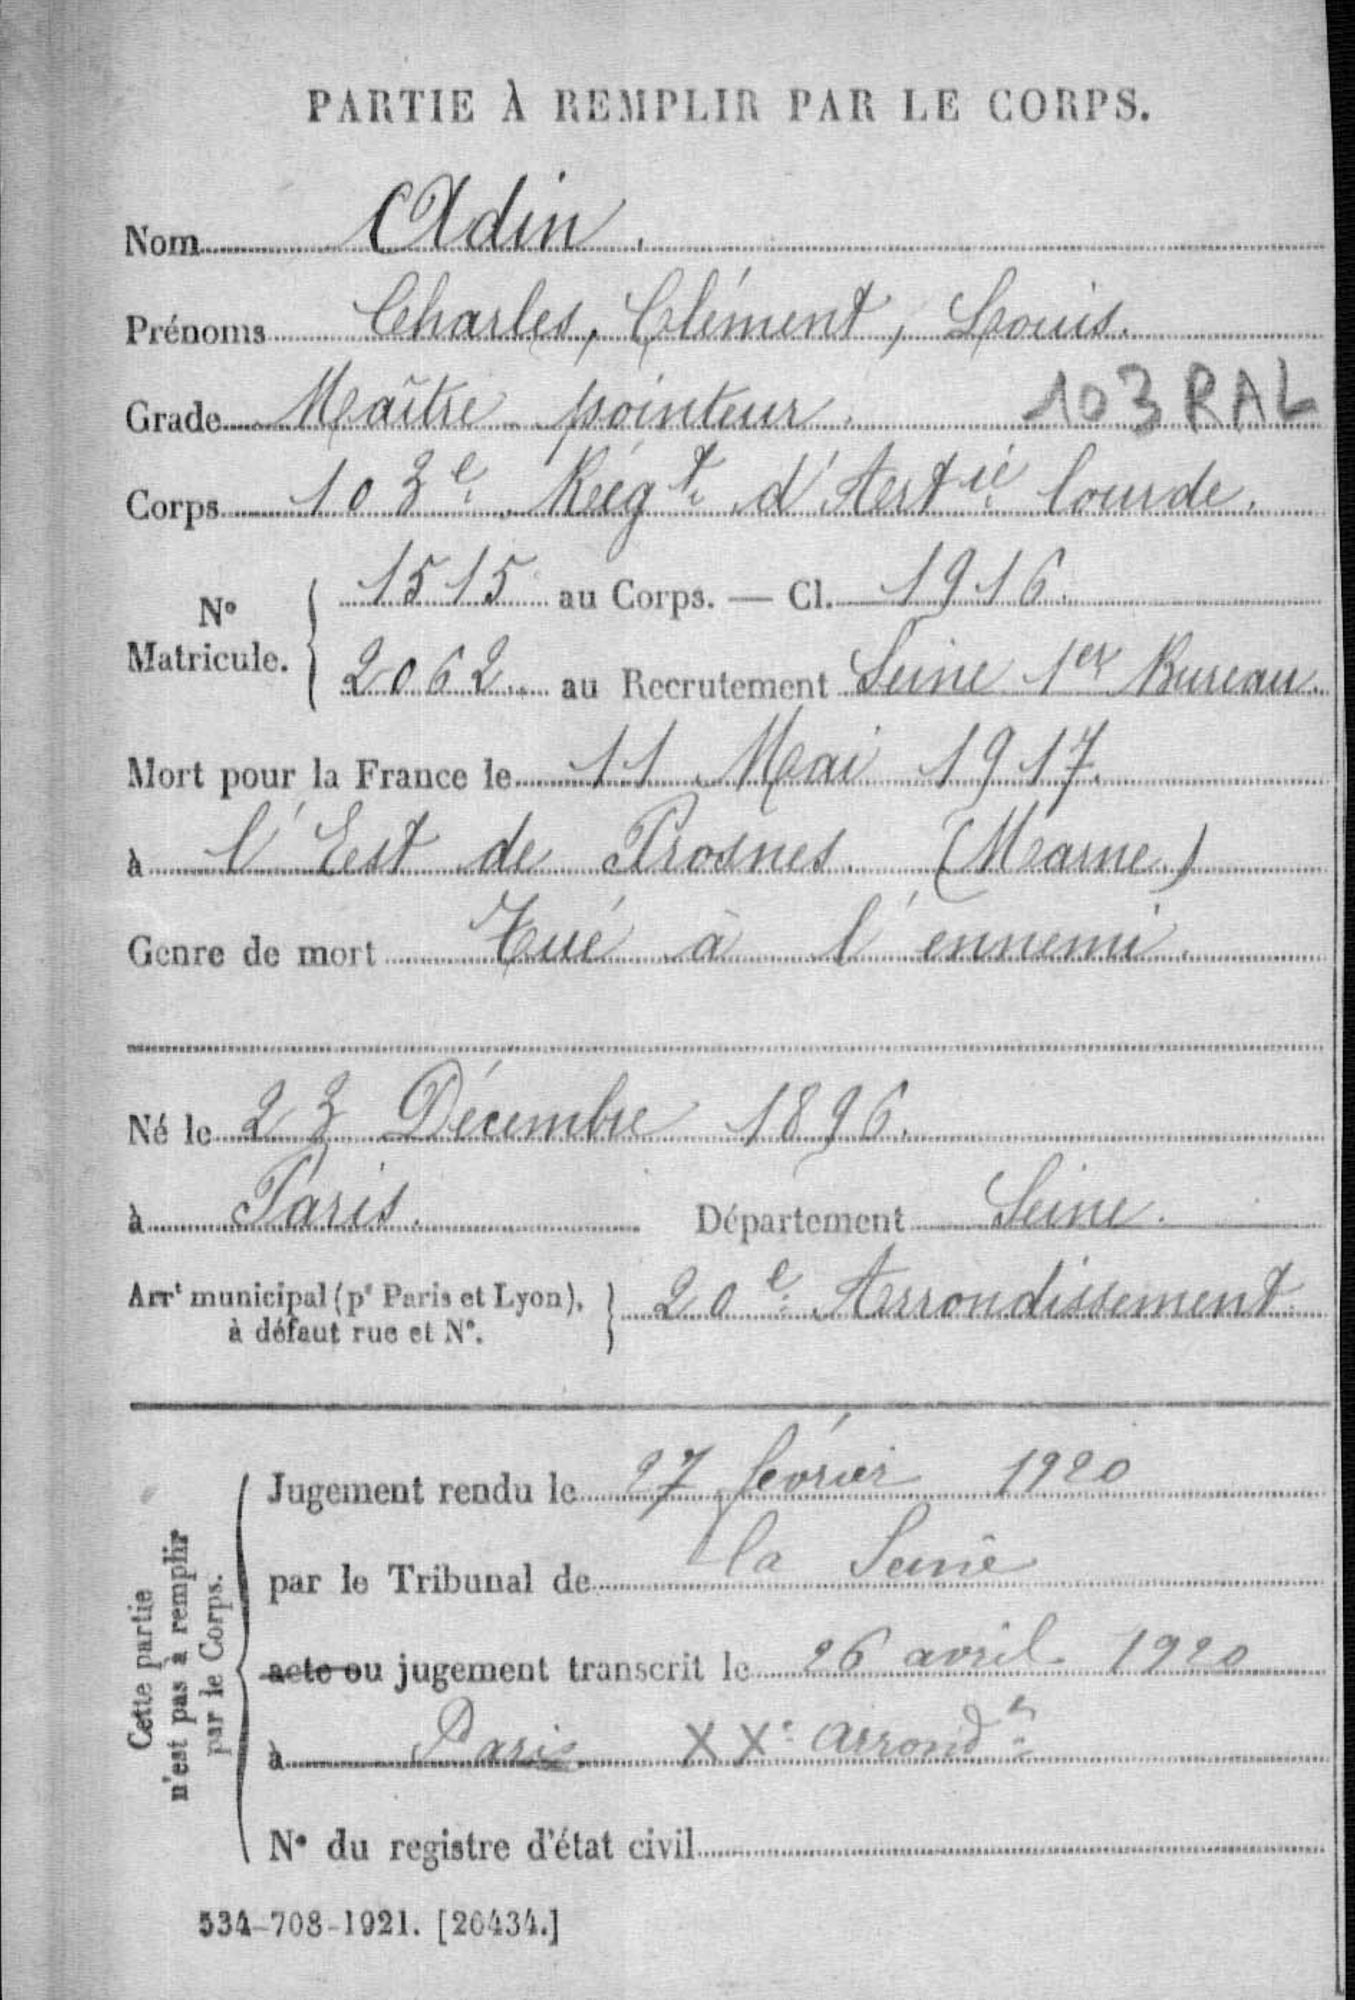 PARTIE À REMPLIR PAR LE CORPS.
Nom Adin.
Prénoms Charles, Clément, Louis.
Grade Maître pointeur. 103 RAL
Corps 103e Régt d'Artie lourde.
No Matricule. { 1515 au Corps. — Cl. 1916.
2062 au Recrutement Seine 1er Bureau.
Mort pour la France le 11 Mai 1917.
à l'Est de Prosnes. (Marne.)
Genre de mort Tué à l'ennemi.
Né le 23 Décembre 1896.
à Paris. Département Seine.
Arrt municipal (pr Paris et Lyon), } 20e Arrondissement.
à défaut rue et No.
Cette partie
n'est pas à remplir
par le Corps.
Jugement rendu le 27 février 1920
par le Tribunal de la Seine
acte ou jugement transcrit le 26 avril 1920
à Paris XXe arrondt
No du registre d'état civil
534-708-1921. [26434.]